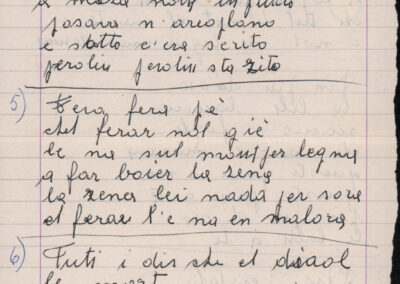 posava n'areoplano
e sotto c'era scrito
perolin perolin sta zito
5) Fera fera fè
chel ferar nol giè
le na sul mont per legna
a far boier la zena
la zena lei nada per sora
el ferau l'e na en malora
6) Tuti i dis che el diaol